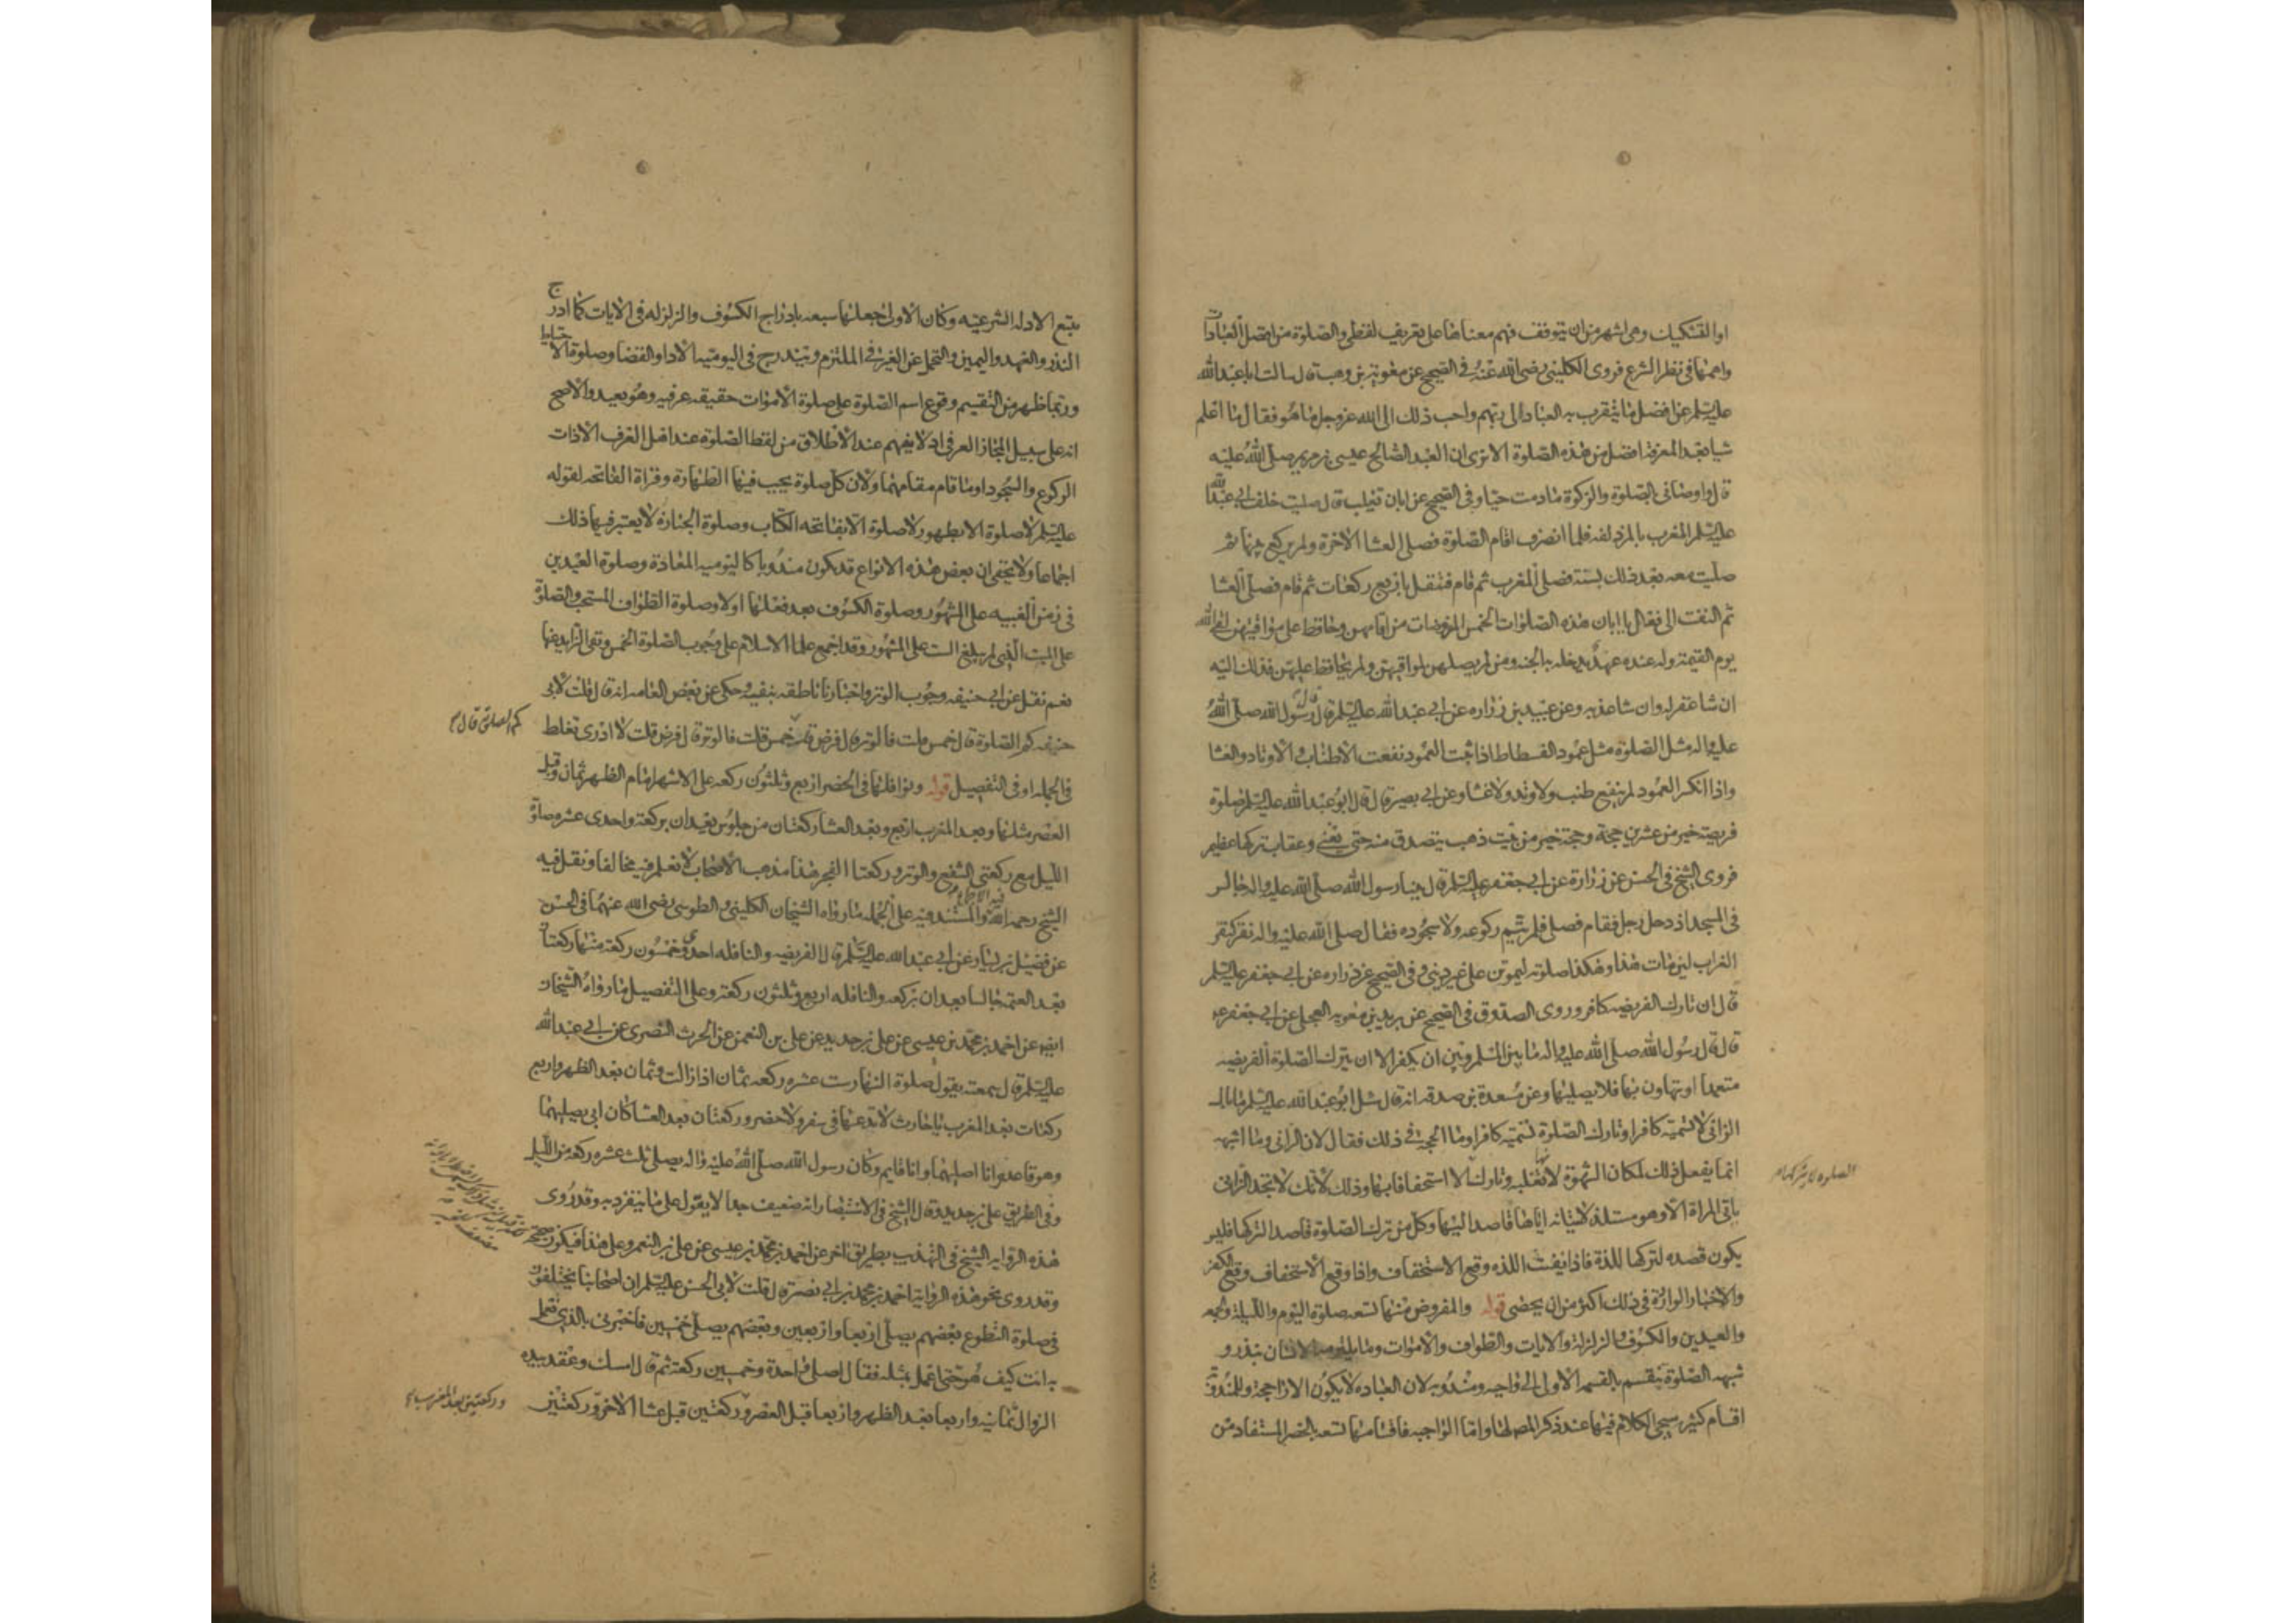 او التشكيك وهى اشهر من ان يتوقف فهم معناها على تعريف لفظى والصلوة من افضل العبادات
واهمها فى نظر الشرع فروى الكلينى رضى الله عنه فى الصحيح عن معوية بن وهب قال سالت اباعبدالله
عليه السلم عن افضل ما يتقرب به العباد الى ربهم واحب ذلك الى الله عزوجل ما هو فقال ما اعلم
شيا بعد المعرفة افضل من هذه الصلوة الا ترى ان العبد الصالح عيسى بن مريم صلى الله عليه
قال واوصانى بالصلوة والزكوة ما دمت حيا وفى الصحيح عن ابان تغلب قال صليت خلف ابى عبدالله
عليه السلم المغرب بالمزدلفة فلما انصرف اقام الصلوة فصلى العشا الاخرة ولم يركع بينهما ثم
صليت معه بعد ذلك بسنة فصلى المغرب ثم قام فتنفل باربع ركعات ثم قام فصلى العشا
ثم التفت الى فقال يا ابان هذه الصلوات الخمس المفروضات من اقامهن وحافظ على مواقيتهن لقى الله
يوم القيمة وله عنده عهد يدخله به الجنه ومن لم يصلهن لمواقيتهن ولم يحافظ عليهن فذلك اليه
ان شا غفر له وان شا عذبه وعن عبيد بن زراره عن ابى عبد الله عليه السلم قال قال رسول الله صلى الله
عليه واله مثل الصلوة مثل عمود الفسطاط اذا ثبت العمود نفعت الاطناب والاوتاد والغشا
واذا انكسر العمود لم ينفع طنب ولا وتد ولا غشا وعن ابى بصير قال قال ابو عبد الله عليه السلم صلوة
فريضة خير من عشرين حجة وحجة خير من بيت ذهب يتصدق منه حتى يفنى وعقاب تركها عظيم
فروى الشيخ فى الحسن عن زرارة عن ابى جعفر عليه السلم قال بينا رسول الله صلى الله عليه واله جالس
فى المسجد اذ دخل رجل فقام فصلى فلم يتم ركوعه ولا سجوده فقال صلى الله عليه واله نقر كنقر
الغراب لين مات هذا وهكذا صلوته ليموتن على غير دينى وفى الصحيح عن زراره عن ابى جعفر عليه السلم
قال ان تارك الفريضه كافر وروى الصدوق فى الصحيح عن بريد بن معويه العجلى عن ابى جعفر عم
قال قال رسول الله صلى الله عليه واله ما بين المسلم وبين ان يكفر الا ان يترك الصلوة الفريضه
متعمدا او يتهاون بها فلا يصليها وعن مسعدة بن صدقه انه قال سئل ابو عبد الله عليه السلم ما بال
الزانى لا تسميه كافرا وتارك الصلوة تسميه كافرا وما الحجة فى ذلك فقال لان الزانى وما اشبهه
انما يفعل ذلك لمكان الشهوة لانها تغلبه وتارك لا استخفافا بها وذلك لانك لا تجد الزانى
الصلوة لا يتركها
ياتى المراة الا وهو مستلذ لاتيانه اياها قاصدا اليها وكل من ترك الصلوة قاصدا لتركها فليس
يكون قصده لتركها اللذة فاذا نفيت اللذه وقع الاستخفاف واذا وقع الاستخفاف وقع الكفر
والاخبار الواردة فى ذلك اكثر من ان يحصى قوله والمفروض منها تسعه صلوة اليوم والليلة والجمعه
والعيدين والكسوف والزلزلة والايات والطواف والاموات وما يلتزمه الانسان بنذر و
شبهه الصلوة ينقسم بالقسم الاول الى واجبه ومندوبه لان العباده لا يكون الا راجحة وللمندوبة
اقسام كثير سيجى الكلام فيها عند ذكر المص لها واما الواجبه فاقسامها تسعه بالحصر المستفاد من
تتبع الادله الشرعيه وكان الاولى جعلها سبعه بادراج الكسوف والزلزله فى الايات كما ادرج
النذر والعهد واليمين والتحمل عن الغير فى الملتزم ويندرج فى اليوميه الادا والقضا وصلوة الاحتياط
وربما ظهر من التقسيم وقوع اسم الصلوة على صلوة الاموات حقيقه عرفيه وهو بعيد والاصح
انه على سبيل المجاز العرفى اذ لا يفهم عند الاطلاق من لفظ الصلوة عند اهل العرف الا ذات
الركوع والسجود او ما قام مقامهما ولان كل صلوة يجب فيها الطهارة وقراة الفاتحه لقوله
عليه السلم لا صلوة الا بطهور لا صلوة الا بفاتحه الكتاب وصلوة الجنازه لا يعتبر فيها ذلك
اجماعا ولا يخفى ان بعض هذه الانواع قد يكون مندوبا كاليوميه المعادة وصلوة العيدين
فى زمن الغيبه على المشهور وصلوة الكسوف بعد فعلها اولا وصلوة الطواف المستحب والصلوة
على الميت الذى لم يبلغ الست على المشهور وقد اجمع علما الاسلام على وجوب الصلوة الخمس ونفى الزايد عنها
نعم نقل عن ابى حنيفه وجوب الوتر واخبارنا ناطقه بنفيه وحكى عن بعض العامه انه قال قلت لابى
حنيفه كم الصلوة قال خمس قلت فالوتر قال فرض قلت خمس قلت فالوتر قال فرض قلت لا ادرى تغلط
كم الصلوة قال
فى الجمله او فى التفصيل قوله ونوافلها فى الحضر اربع وثلثون ركعه على الاشهر امام الظهر ثمان وقبل
العصر مثلها وبعد المغرب اربع وبعد العشا ركعتان من جلوس يعدان بركعة واحدى عشره صلوة
الليل مع ركعتى الشفع والوتر وركعتا الفجر هذا مذهب الاصحاب لا نعلم فيه مخالفا ونقل فيه
الشيخ رحمه الله والمستند فيه على الجمله ما رواه الشيخان الكلينى والطوسى رضى الله عنهما فى الحسن
فيه الاجماع
عن فضيل بن يسار عن ابى عبد الله عليه السلم قال الفريضه والنافله احدى وخمسون ركعة منها ركعتان
بعد العتمه جالسا يعدان بركعه والنافله اربع وثلثون ركعة وعلى التفصيل ما رواه الشيخان
ايضا عن احمد بن محمد بن عيسى عن على بن حديد عن على بن النعمن عن الحرث النصرى عن ابى عبد الله
عليه السلم قال سمعته يقول صلوة النهار ست عشره ركعه ثمان اذا زالت وثمان بعد الظهر واربع
ركعات بعد المغرب يا حارث لا تدعها فى سفر ولا حضر وركعتان بعد العشا كان ابى يصليهما
وهو قاعد وانا اصليهما وانا قايم وكان رسول الله صلى الله عليه واله يصلى ثلث عشره ركعه من الليل
وفى الطريق على بن حديد قال الشيخ فى الاستبصار انه ضعيف جدا لا يعول على ما ينفرد به وقد روى
هذه الروايه الشيخ فى التهذيب بطريق اخر عن احمد بن محمد بن عيسى عن على بن النعمن وعلى هذا فيكون صحيحه
وقد روى نحو هذه الرواية احمد بن محمد بن ابى نصر قال قلت لابى الحسن عليه السلم ان اصحابنا يختلفون
فى صلوة التطوع بعضهم يصلى اربعا واربعين وبعضهم يصلى خمسين فاخبرنى بالذى تعمل
به انت كيف هو حتى اعمل بمثله فقال اصلى واحدة وخمسين ركعة ثم قال امسك وعقد بيده
الزوال ثمانيه واربعا بعد الظهر واربعا قبل العصر وركعتين قبل عشا الاخرة وركعتين
وركعتين بعد المغرب